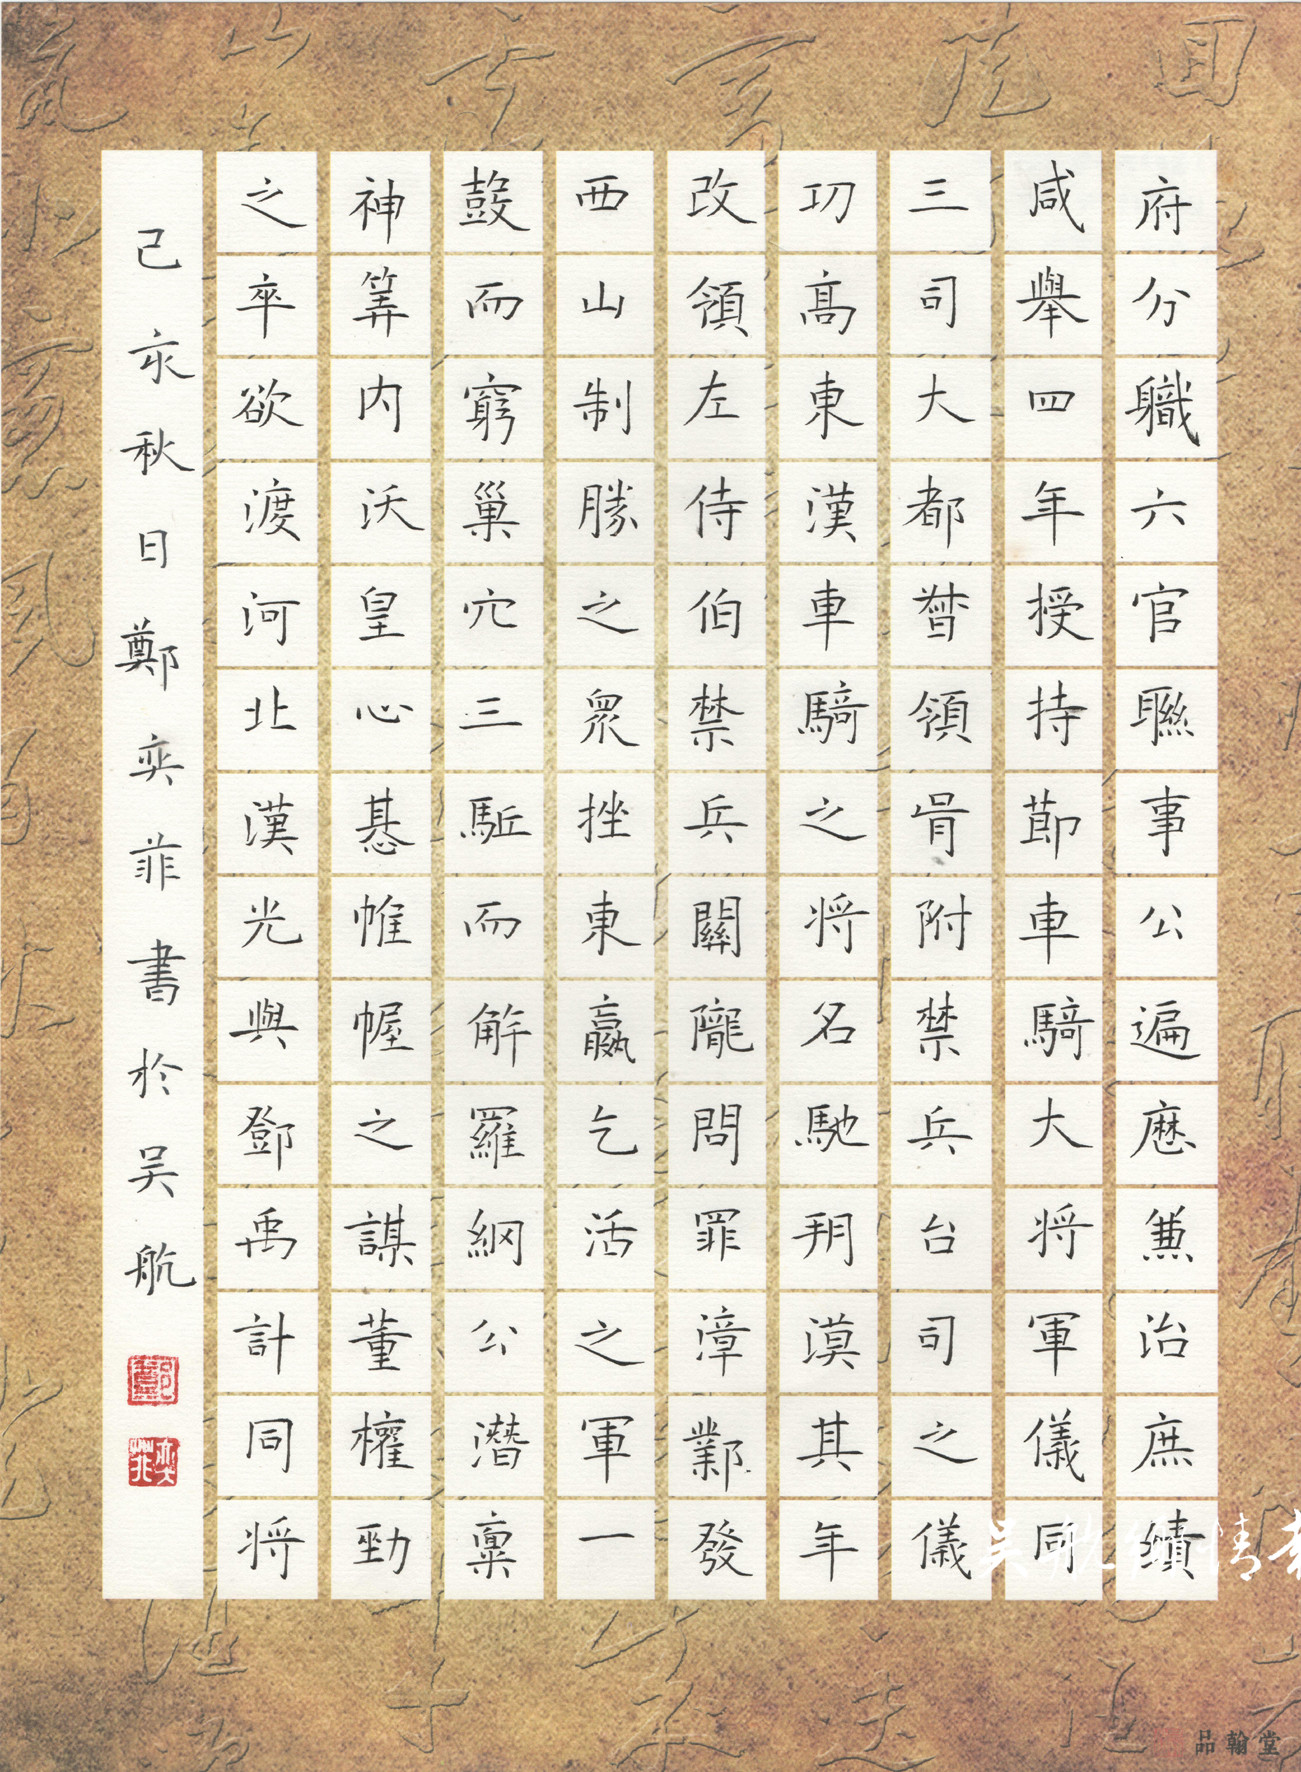 府分職六官聮事公遍厯兼治庶績
咸舉四年授持節車騎大將軍儀同
三司大都督領胥附禁兵台司之儀
功髙東漢車騎之将名馳朔漠其年
改領左侍伯禁兵關隴問罪漳鄴發
西山制勝之眾挫東嬴乞活之軍一
鼓而窮巢穴三駈而解羅網公潛禀
神筭内沃皇心惎帷幄之謀董權勁
之卒欲渡河北漢光與鄧禹計同将
己亥秋日鄭奕菲書於吴航
品翰堂